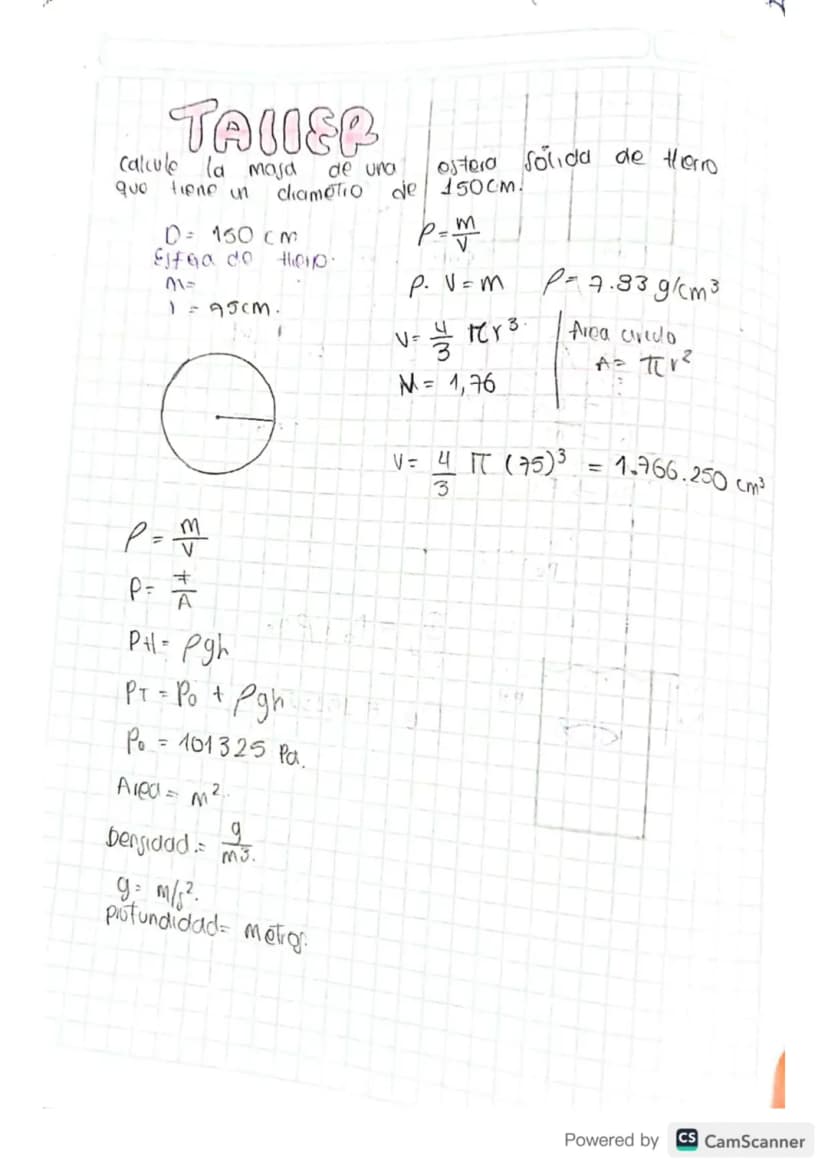 TALLER
calcule la masa de una esfera sólida de Hierro
que tiene un diametro de 150cm.
D = 150 cm
Esfera de Hierro.
m=
r = 75cm.
ρ = m/V
ρ. V = m ρ = 7.83 g/cm³
V = 4/3 πr³.
M = 1,76
Area circulo
A = πr²
V = 4/3 π (75)³ = 1.766.250 cm³
ρ = m/V
P = F/A
PH = ρgh
PT = Po + ρgh
Po = 101325 Pa.
Area = m².
Densidad = g/m3.
g = m/s².
profundidad = metros.
Powered by CS CamScanner